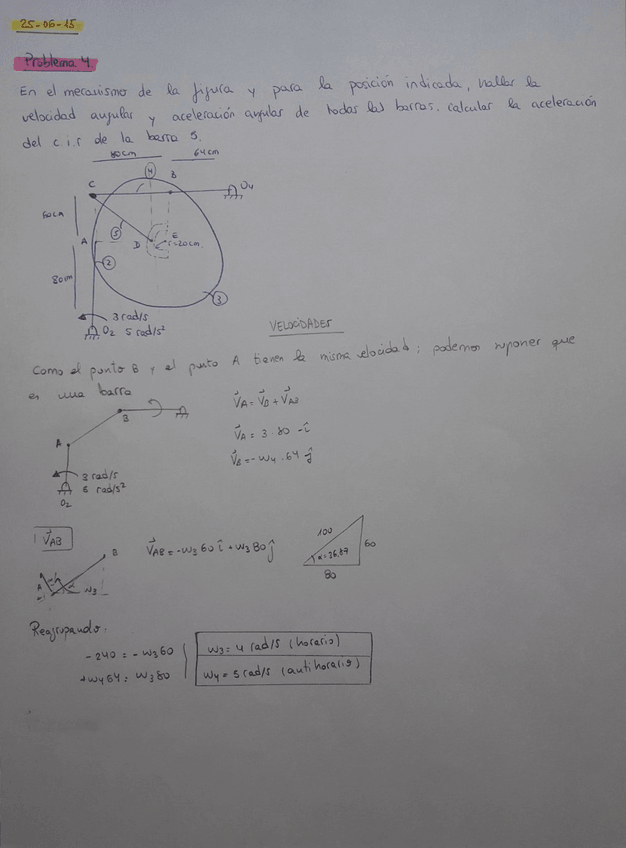 25-06-15
Problema 4
En el mecanismo de la figura y para la posición indicada, hallar la
velocidad angular y aceleración angular de todas las barras. calcular la aceleración
del c.i.r de la barra 5.
80cm 64cm
C 4 B O4
60cm
A 5 D E
r=20cm.
2
80cm
3
3 rad/s
O2 5 rad/s²
VELOCIDADES
Como el punto B y el punto A tienen la misma velocidad; podemos suponer que
es una barra
B
A
3 rad/s
5 rad/s²
O2
VA = VB + VAB
VA = 3·80 -i
VB = -w4·64 j
VAB
A B
w3
VAB = -w3 60 i + w3 80 j
100 60
α=36,87
80
Reagrupando.
-240 = -w3 60
+w4 64 = w3 80
w3 = 4 rad/s (horario)
w4 = 5 rad/s (antihorario)